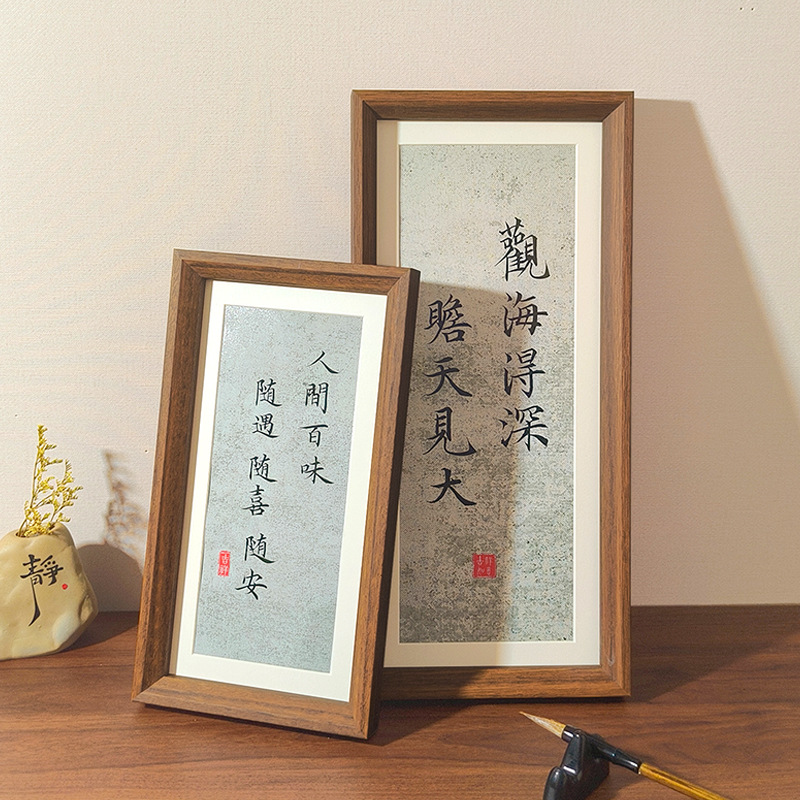 觀海淂深
瞻天見大
人間百味
随遇随喜随安
吉祥
靜